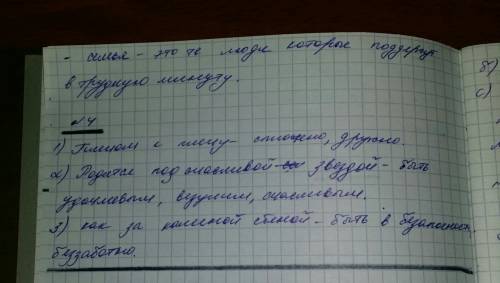 - семья - это те люди которые поддержут
в трудную минуту.
№4
1) Плечом к плечу - сплочено, дружно.
2) Родится под счасливой звездой - быть
удочливым, везучим, счасливым.
3) как за каменной стеной - быть в безопасност.
беззаботно.
б)
с)